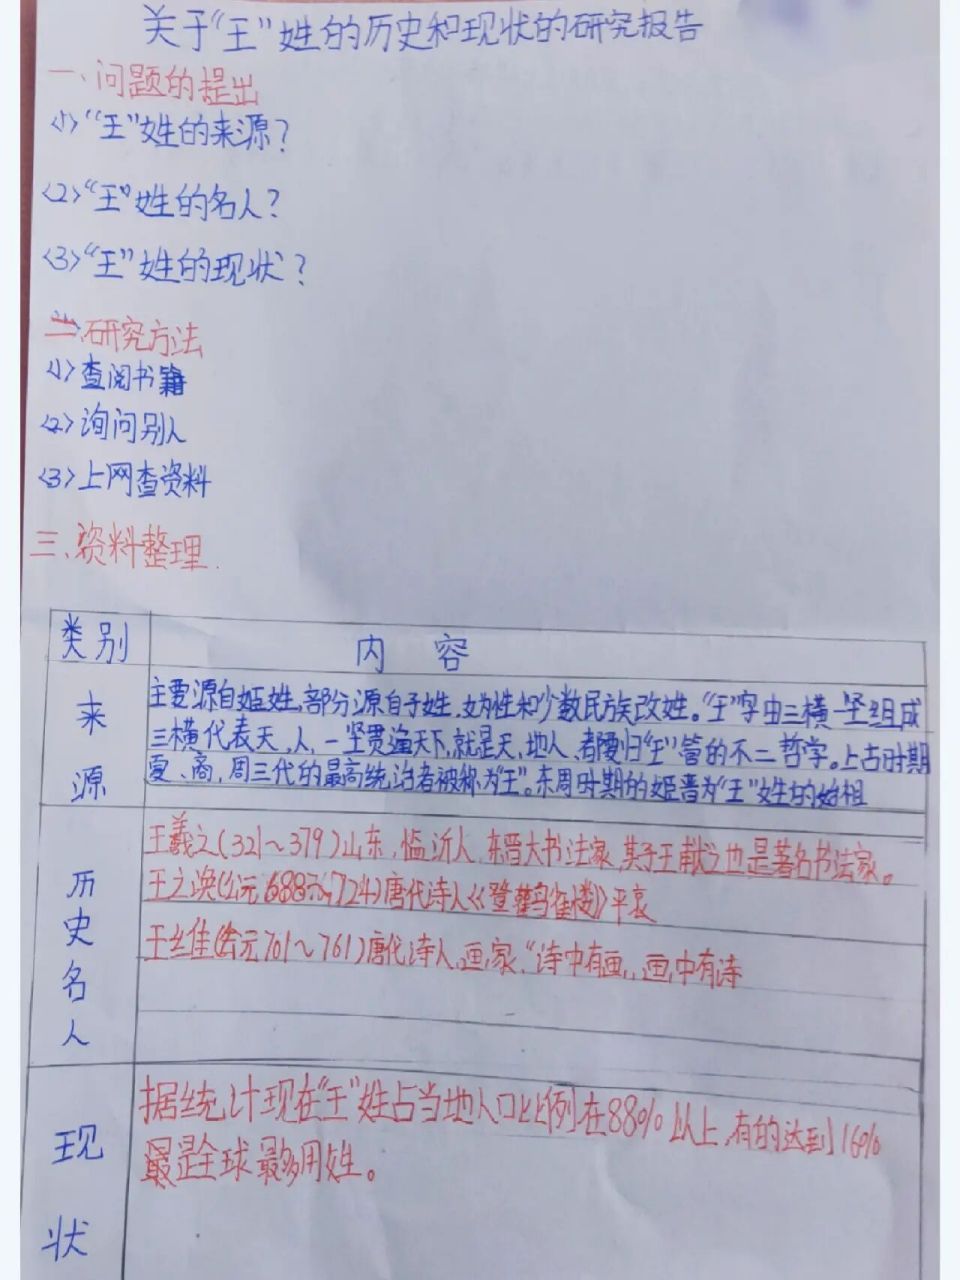 关于“王”姓的历史和现状的研究报告
一、问题的提出
<1>“王”姓的来源？
<2>“王”姓的名人？
<3>“王”姓的现状？
二、研究方法
<1>查阅书籍
<2>询问别人
<3>上网查资料
三、资料整理.
类别 内 容
来源
主要源自姬姓,部分源自子姓,妫姓和少数民族改姓。“王”字由三横一竖组成
三横代表天,人,一竖贯通天下,就是天,地人,都要归“王”管的不二哲学。上古时期
夏、商,周三代的最高统治者被称为“王”。东周时期的姬晋为“王”姓的始祖
历史名人
王羲之(321~379)山东,临沂人,东晋大书法家,其子王献之也是著名书法家。
王之涣(公元688元724)唐代诗人《登鹳雀楼》
王维(公元701~761)唐代诗人,画家,“诗中有画,,画中有诗
现状
据统计现在“王”姓占当地人口比例在88%以上,有的达到16%
最是全球最多用姓。